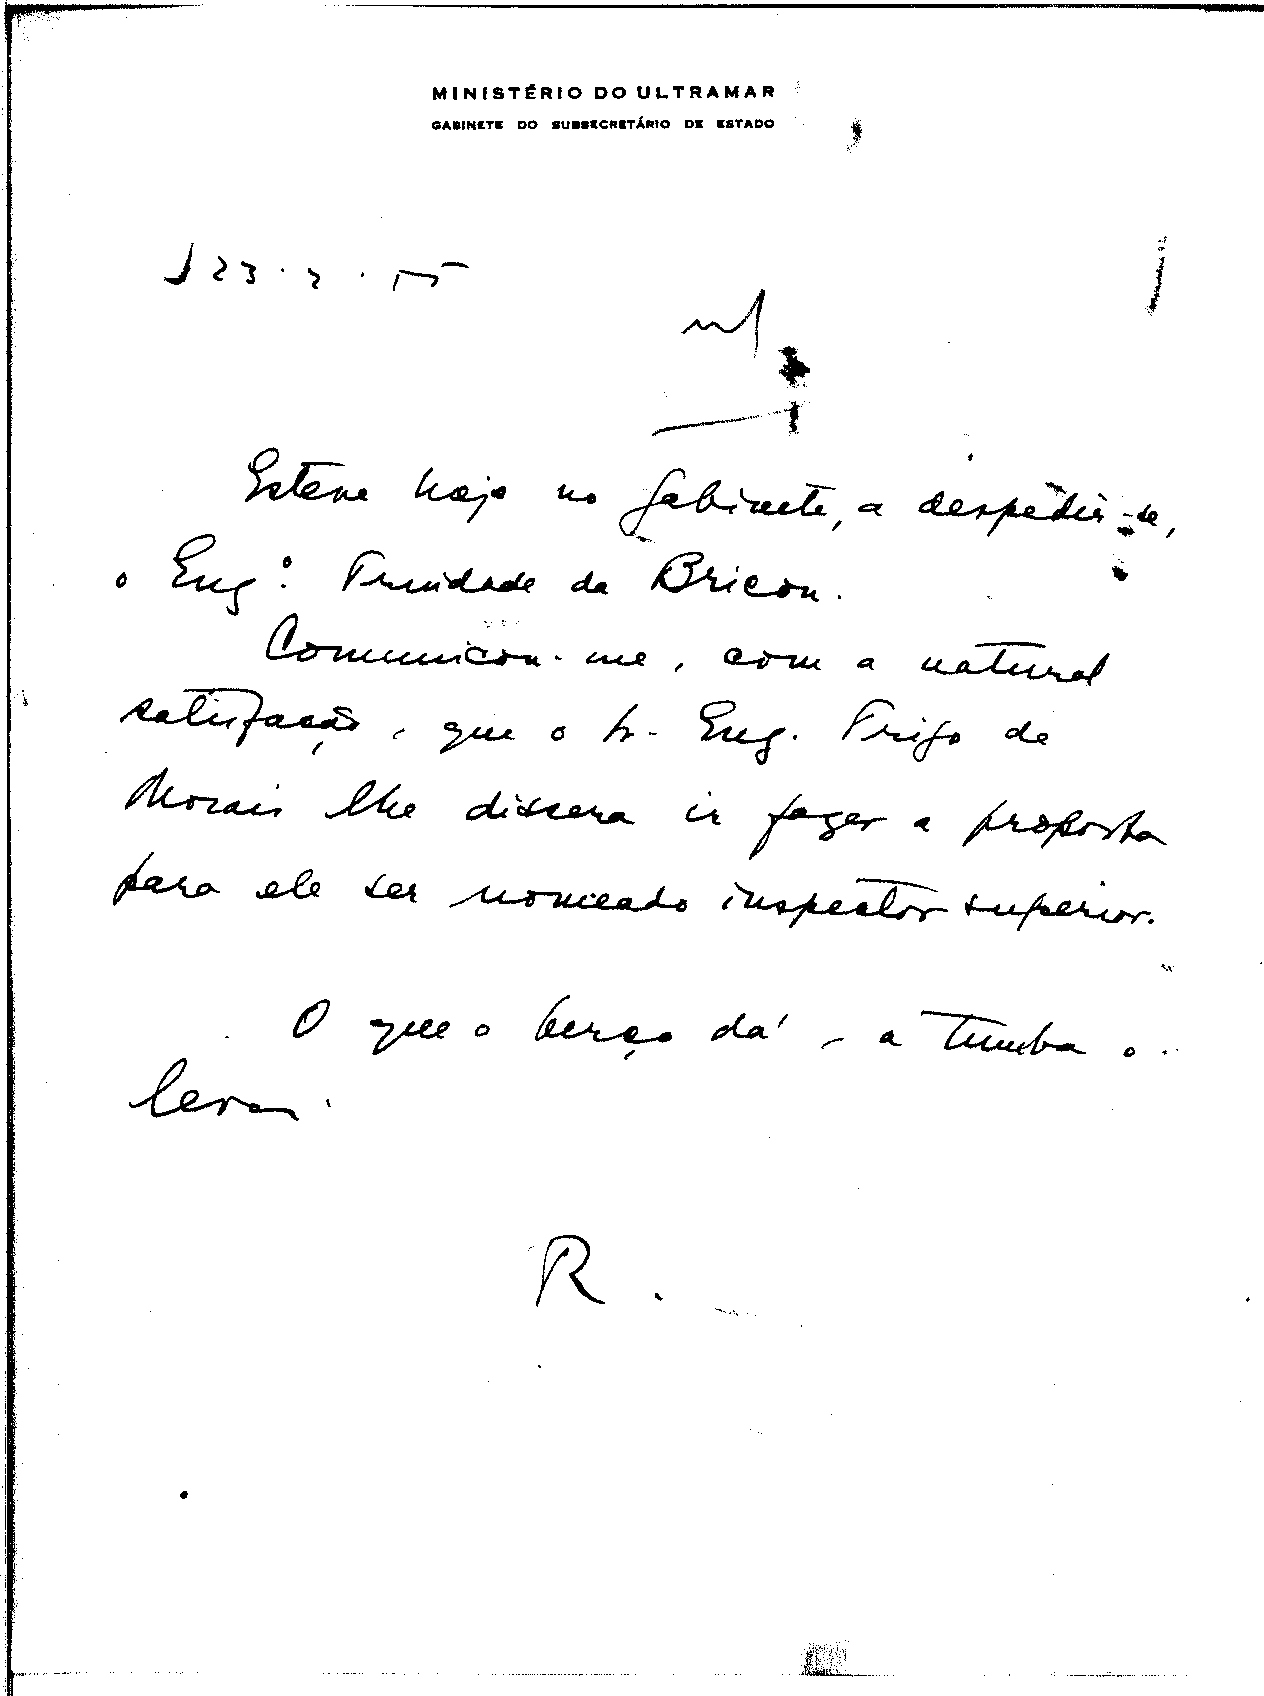 MINISTÉRIO DO ULTRAMAR
GABINETE DO SUBSECRETÁRIO DE ESTADO
23.2.55
Esteve hoje no Gabinete, a despedir-se,
o Eng.º Trindade da
Comunicou-me, com a natural
satisfação, que o Sr. Eng. Trigo de
Morais lhe dissera ir fazer a proposta
para ele ser nomeado inspector superior.
O que o berço dá, a tumba o
leva.
R.